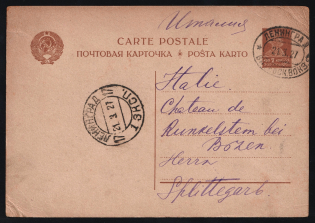 Италия
CARTE POSTALE
ПОЧТОВАЯ КАРТОЧКА ★ POŜTA KARTO
Italie
Chateau de
Runkelstein bei
Bozen
Herrn
Splittegarb
ЛЕНИНГРАД
21.3.27
ЭКСП.
ЛЕНИНГРАД